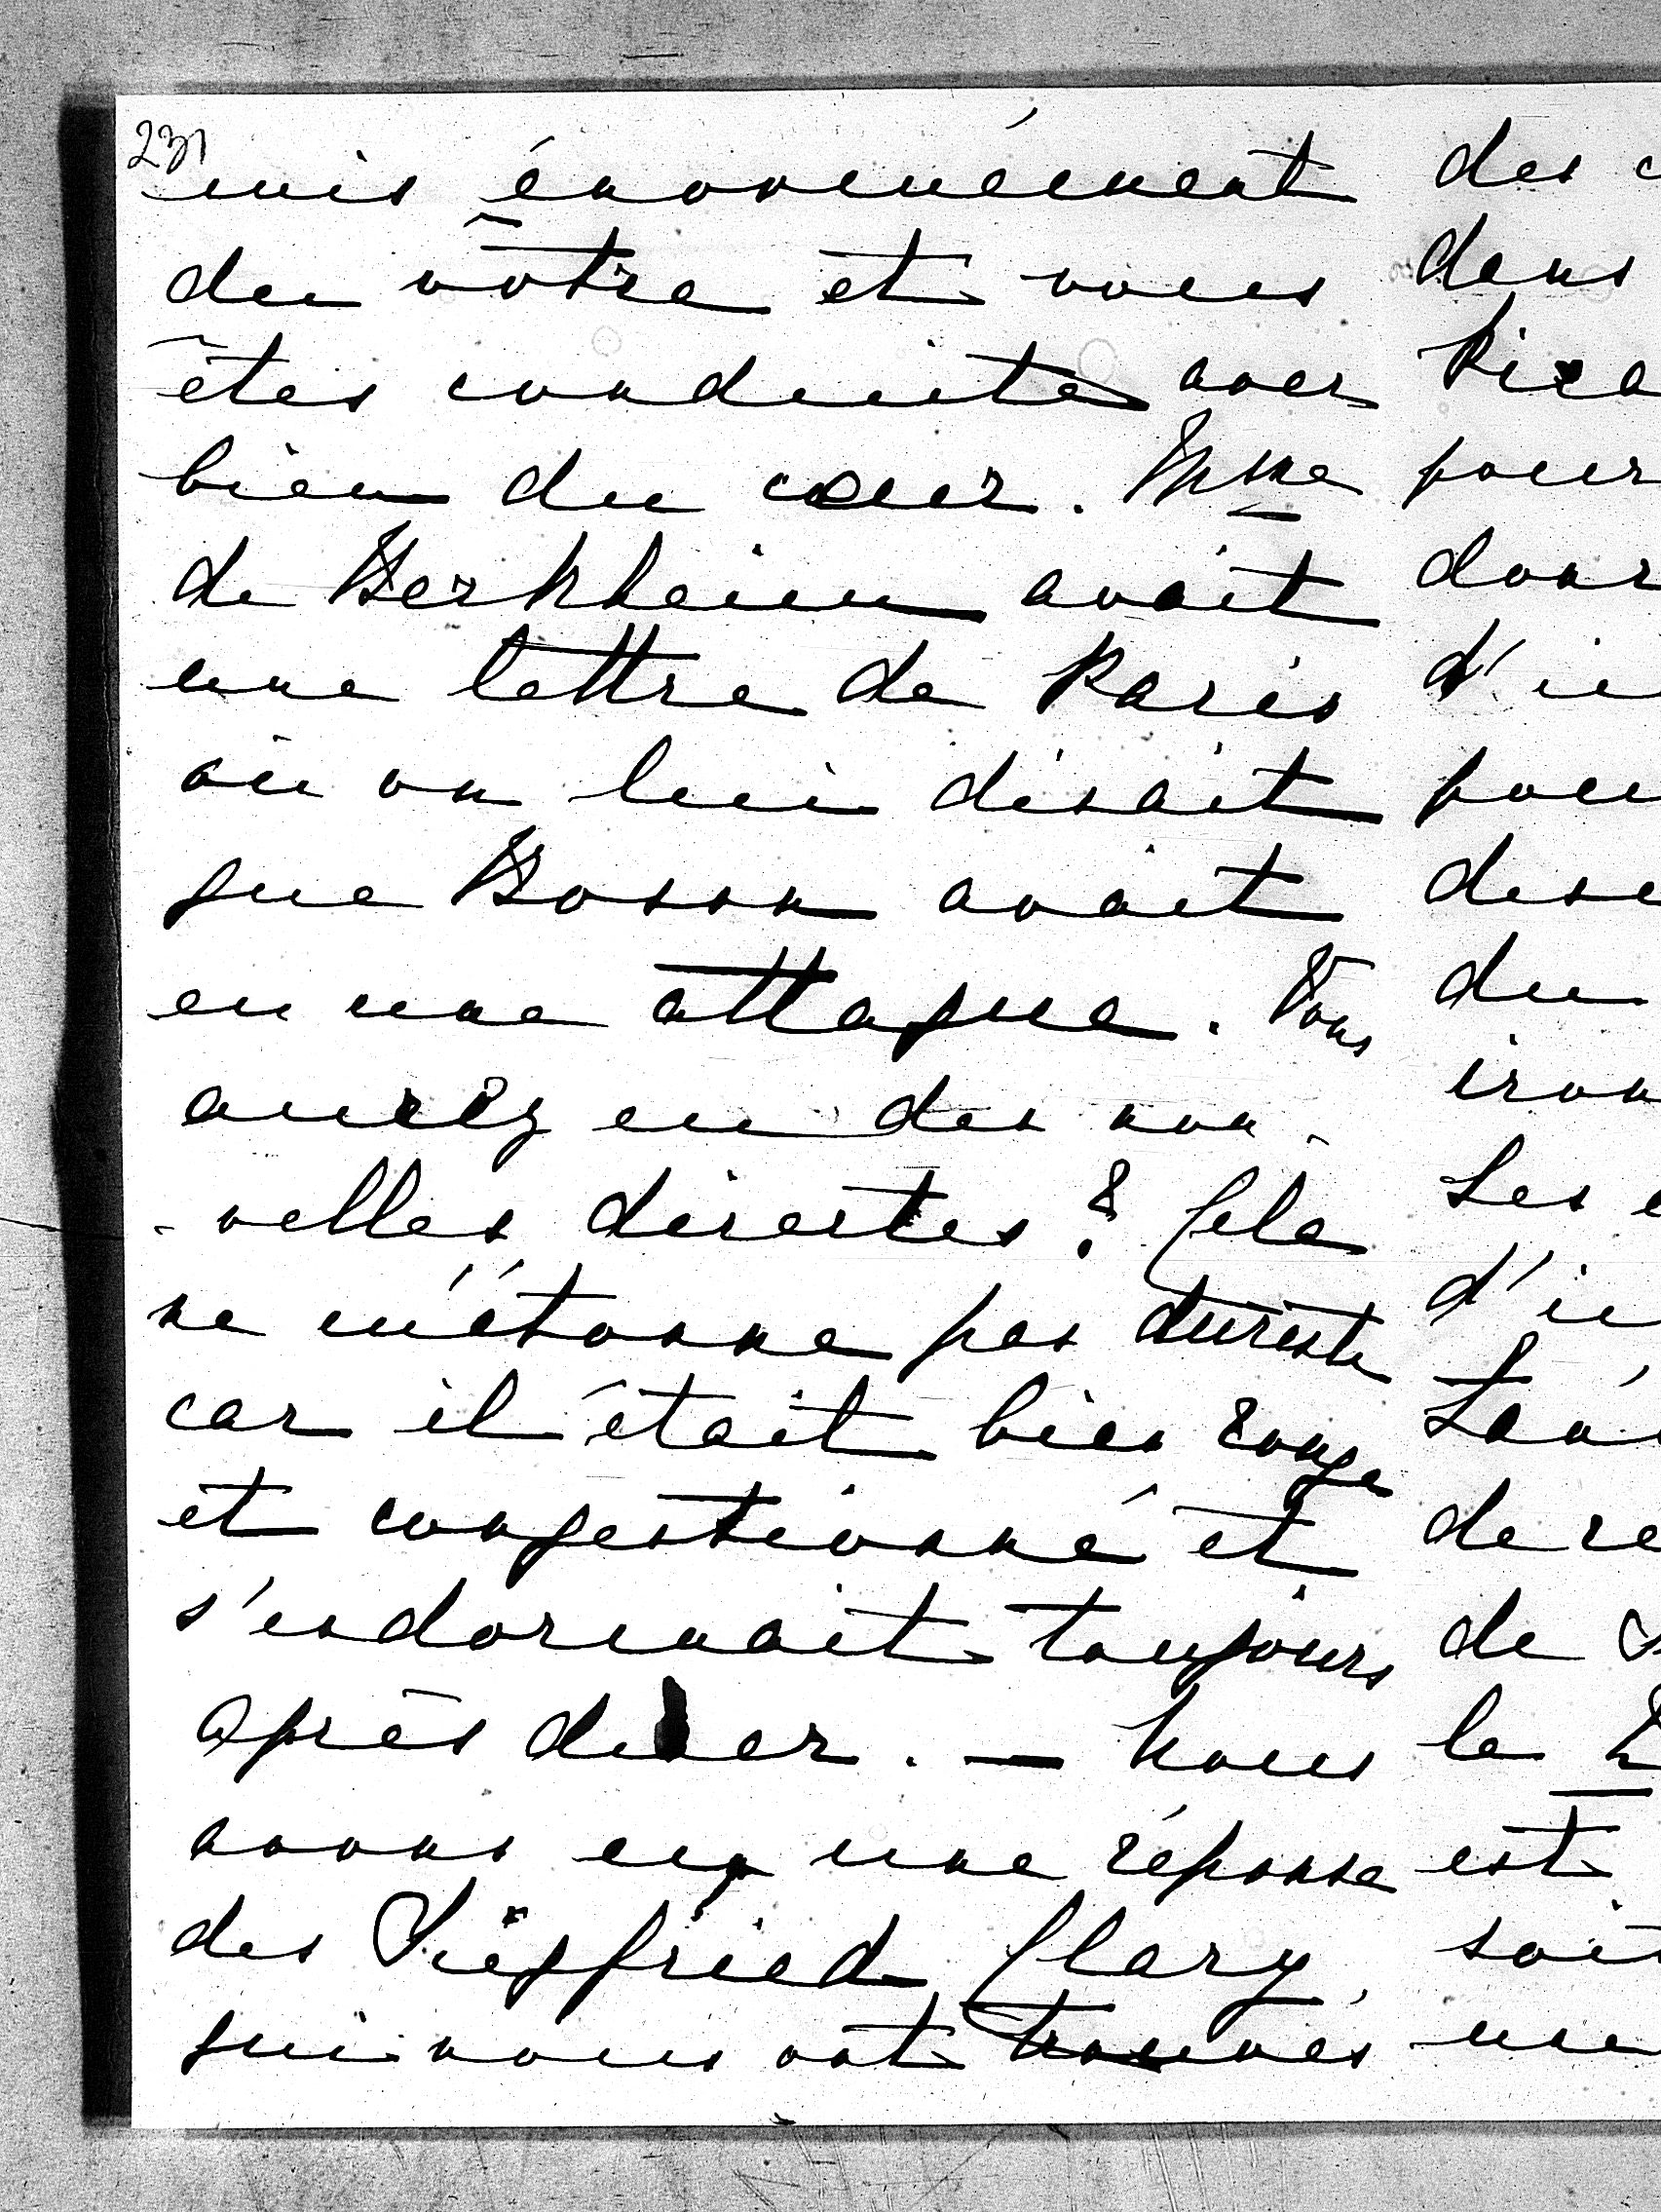 231
mis énormément
du vôtre et vous
êtes conduite avec
bien du cœur. Mme
de Berkheim avait
une lettre de Paris
où on lui disait
que Boson avait
eu une attaque. Vous
aurez eu des nou-
-velles directes? Cela
ne m'étonne pas dureste
car il était bien rouge
et congestionné et
s'endormait toujours
après diner. — Nous
avons eu une réponse
des Siegfried Clary,
qui nous ont trouvés
des
dans
pour
d'
du
Les
d'
de
de
le
est
soit